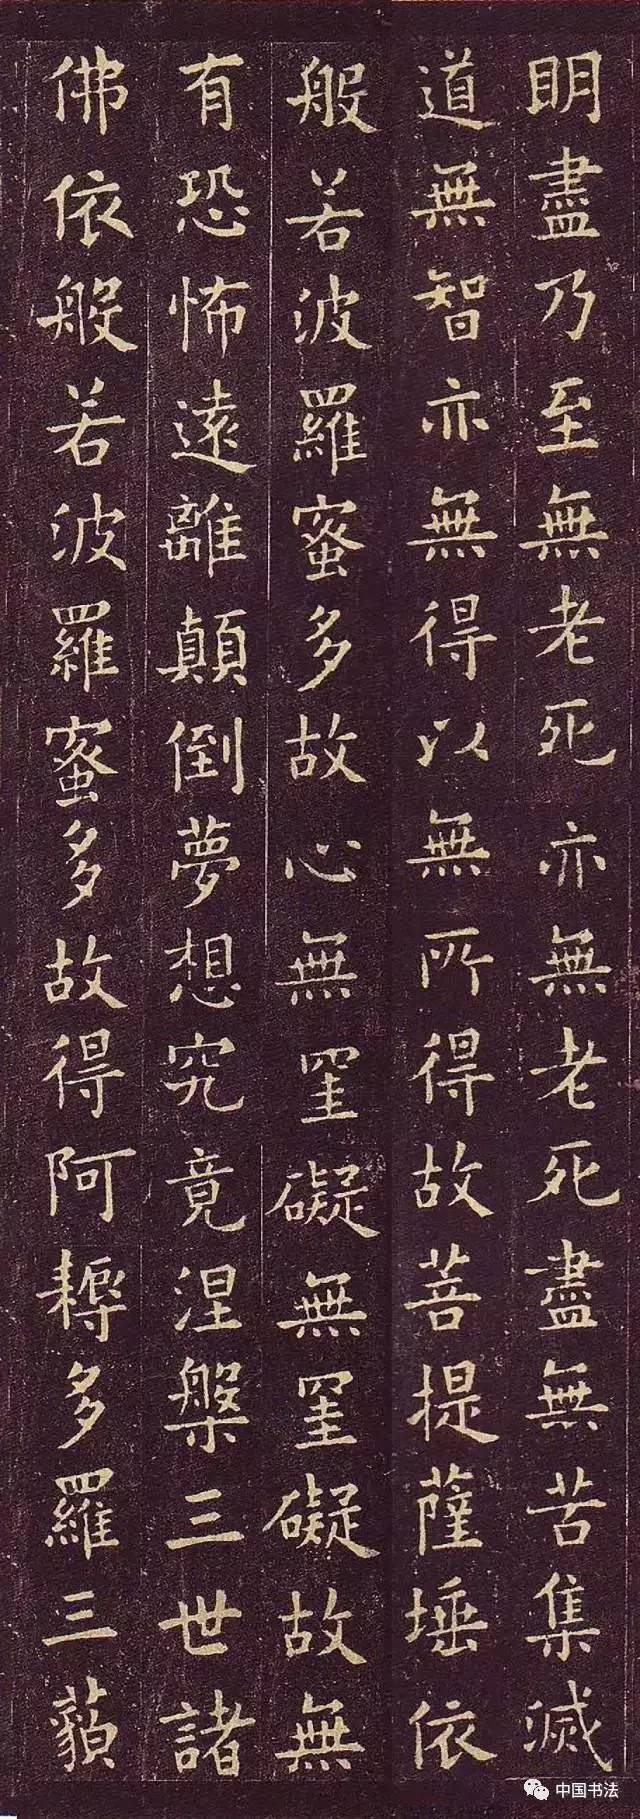 明盡乃至無老死亦無老死盡無苦集滅
道無智亦無得以無所得故菩提薩埵依
般若波羅蜜多故心無罣礙無罣礙故無
有恐怖遠離顛倒夢想究竟涅槃三世諸
佛依般若波羅蜜多故得阿耨多羅三藐
中国书法